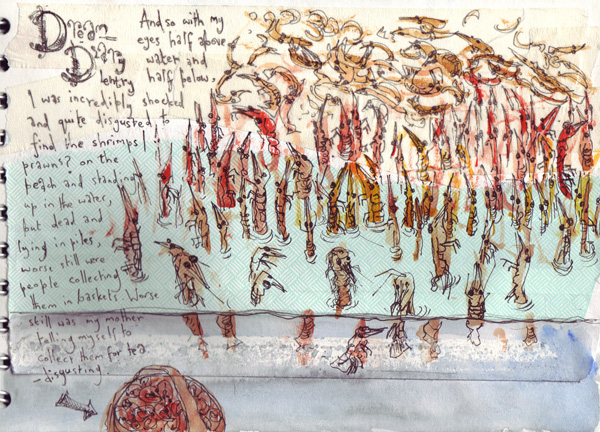 Dream
Diary
entry
And so with my
eyes half above
water and
half below,
I was incredibly shocked
and quite disgusted to
find the shrimps/
prawns? on the
beach and standing
up in the water,
but dead and
lying in piles
worse still were
people collecting
them in baskets. Worse
still was my mother
telling myself to
collect them for tea
- disgusting